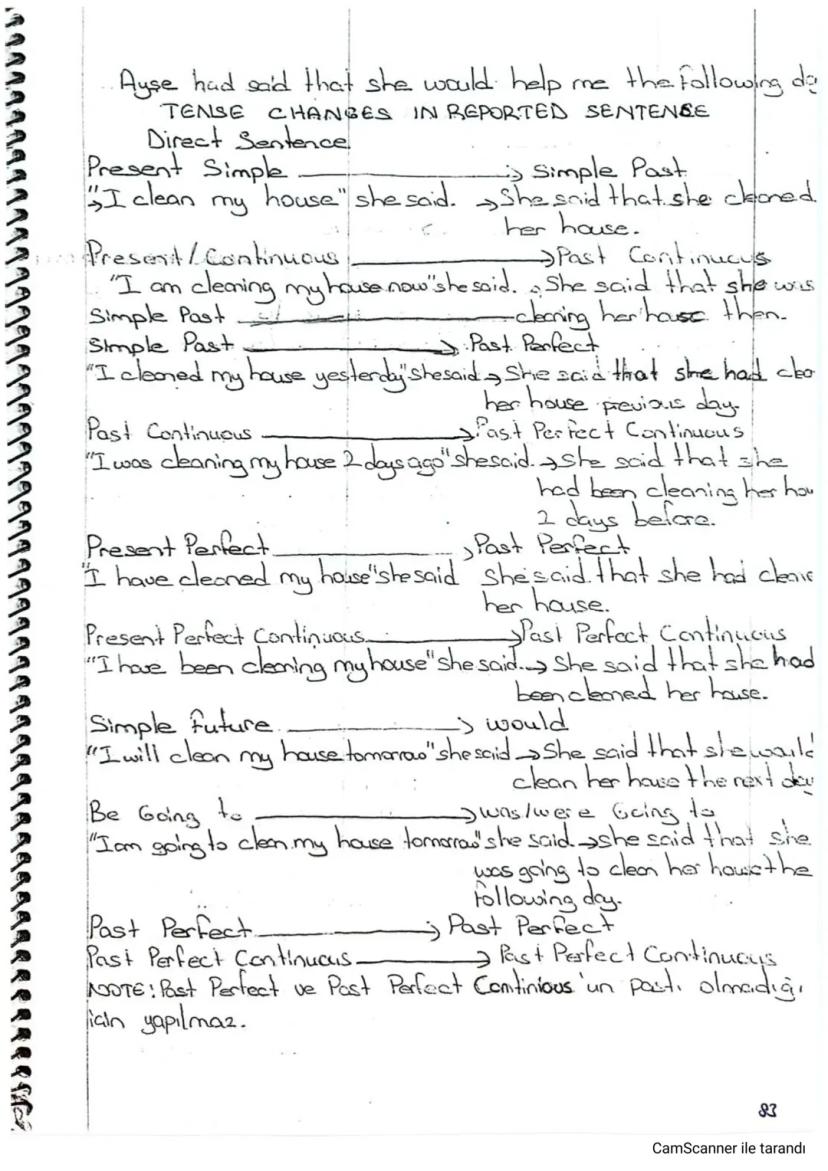 Ayşe had said that she would help me the following da
TENSE CHANGES IN REPORTED SENTENCE
Direct Sentence
Present Simple → Simple Past
"I clean my house" she said. → She said that she cleaned
her house.
Present / Continuous → Past Continuous
"I am cleaning my house now" she said. → She said that she was
Simple Past cleaning her house then.
Simple Past → Past Perfect
"I cleaned my house yesterday" she said → She said that she had clea
her house previous day.
Past Continuous → Past Perfect Continuous
"I was cleaning my house 2 days ago" she said. → She said that she
had been cleaning her hou
2 days before.
Present Perfect → Past Perfect
"I have cleaned my house" she said She said that she had cleane
her house.
Present Perfect Continuous → Past Perfect Continuous
"I have been cleaning my house" she said. → She said that she had
been cleaned her house.
Simple future → would
"I will clean my house tomorrow" she said → She said that she would
clean her house the next day
Be Going to → was/were Going to
"I am going to clean my house tomorrow" she said. → she said that she
was going to clean her house the
following day.
Past Perfect → Past Perfect
Past Perfect Continuous → Past Perfect Continuous
NOTE: Past Perfect ve Past Perfect Continious'un pastı olmadığı
için yapılmaz.
83
CamScanner ile tarandı